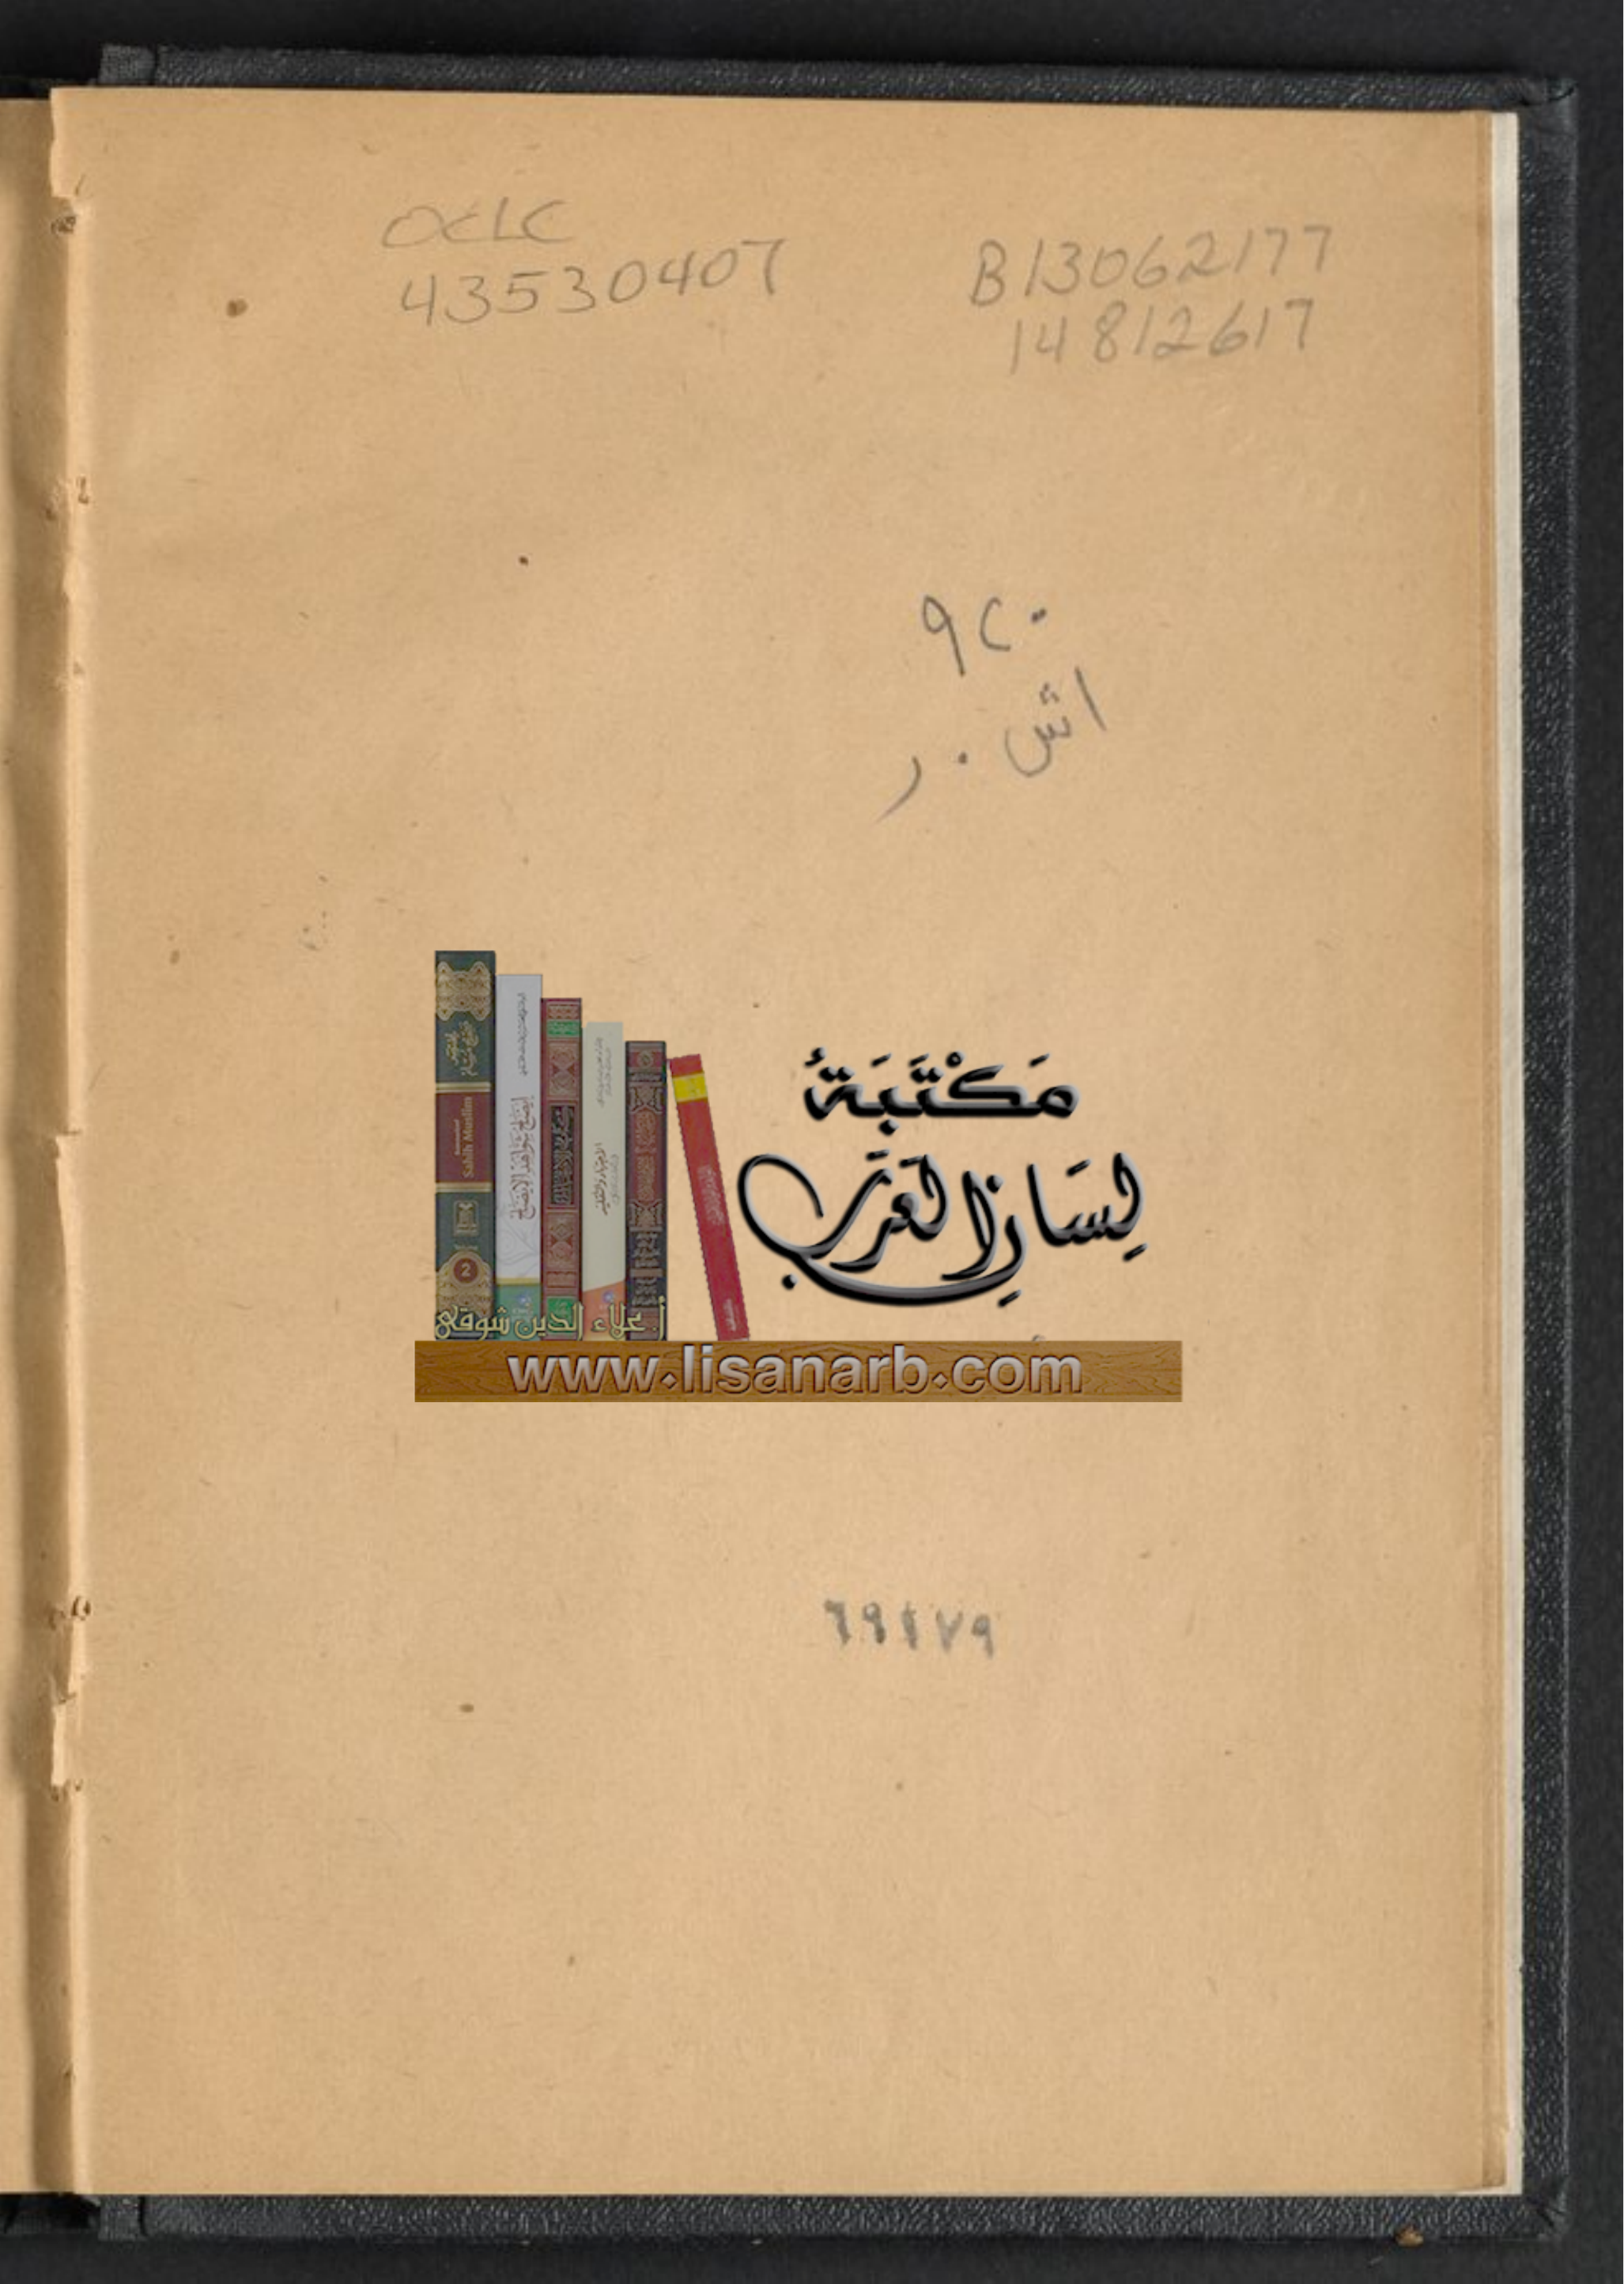 OCLC
43530407
B13062177
14812617
٩٢٠
اش . ر
مَكْتَبَةُ
لِسَانِ العَرَبِ
Sahih Muslim
2
أ. علاء الدين شوقي
www.lisanarb.com
٦٩١٧٩